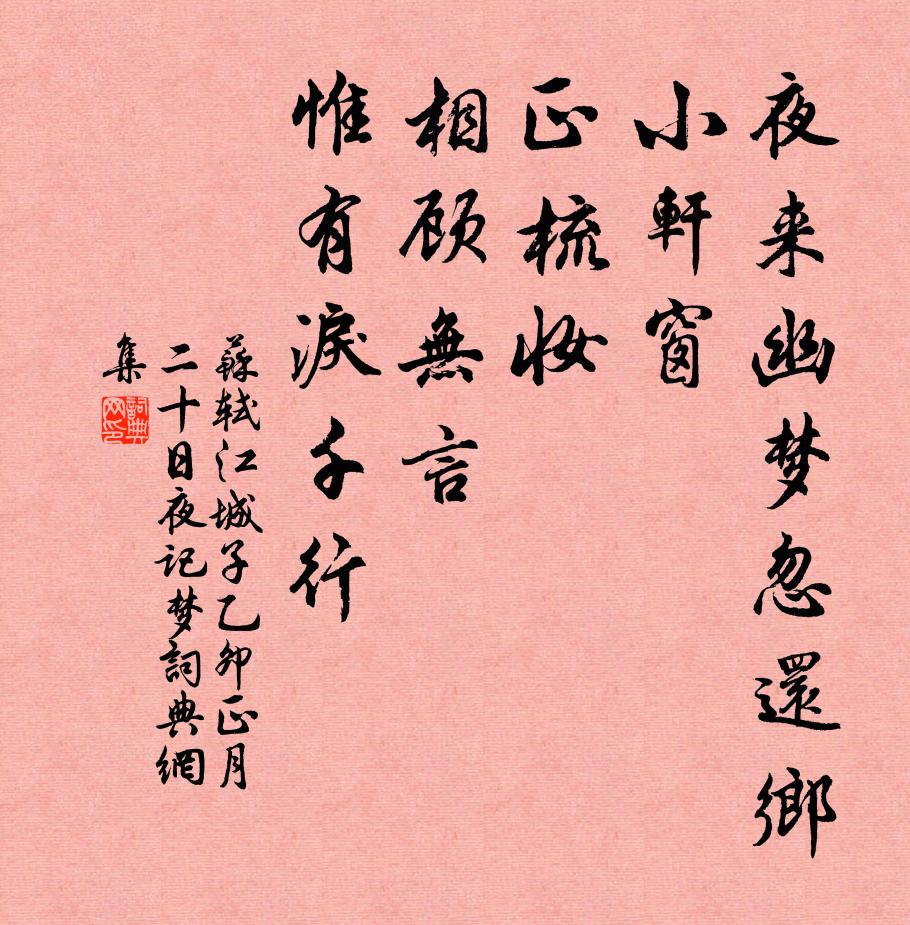 夜来幽梦忽還鄉
小軒窗
正梳妆
相顾無言
惟有淚千行
蘇轼江城子乙卯正月
二十日夜记梦詞典網
集
詞典
网印